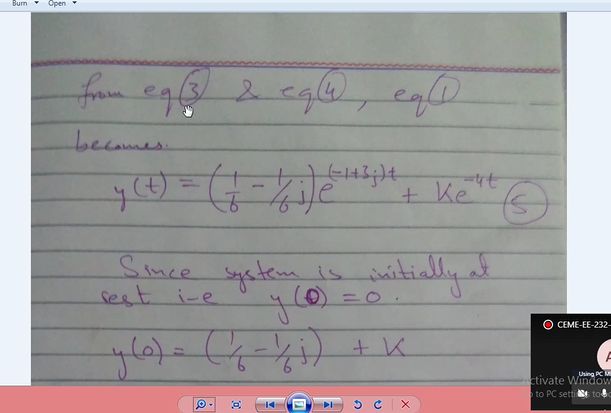 Burn Open
from eq ③ & eq ④, eq ①
becomes.
y(t) = (1/6 - 1/6 j) e^(-1+3j)t + Ke^-4t ⑤
Since system is initially at
rest i-e y(0) = 0.
y(0) = (1/6 - 1/6 j) + K
CEME-EE-232-
Using PC M
Activate Window
to PC settings to